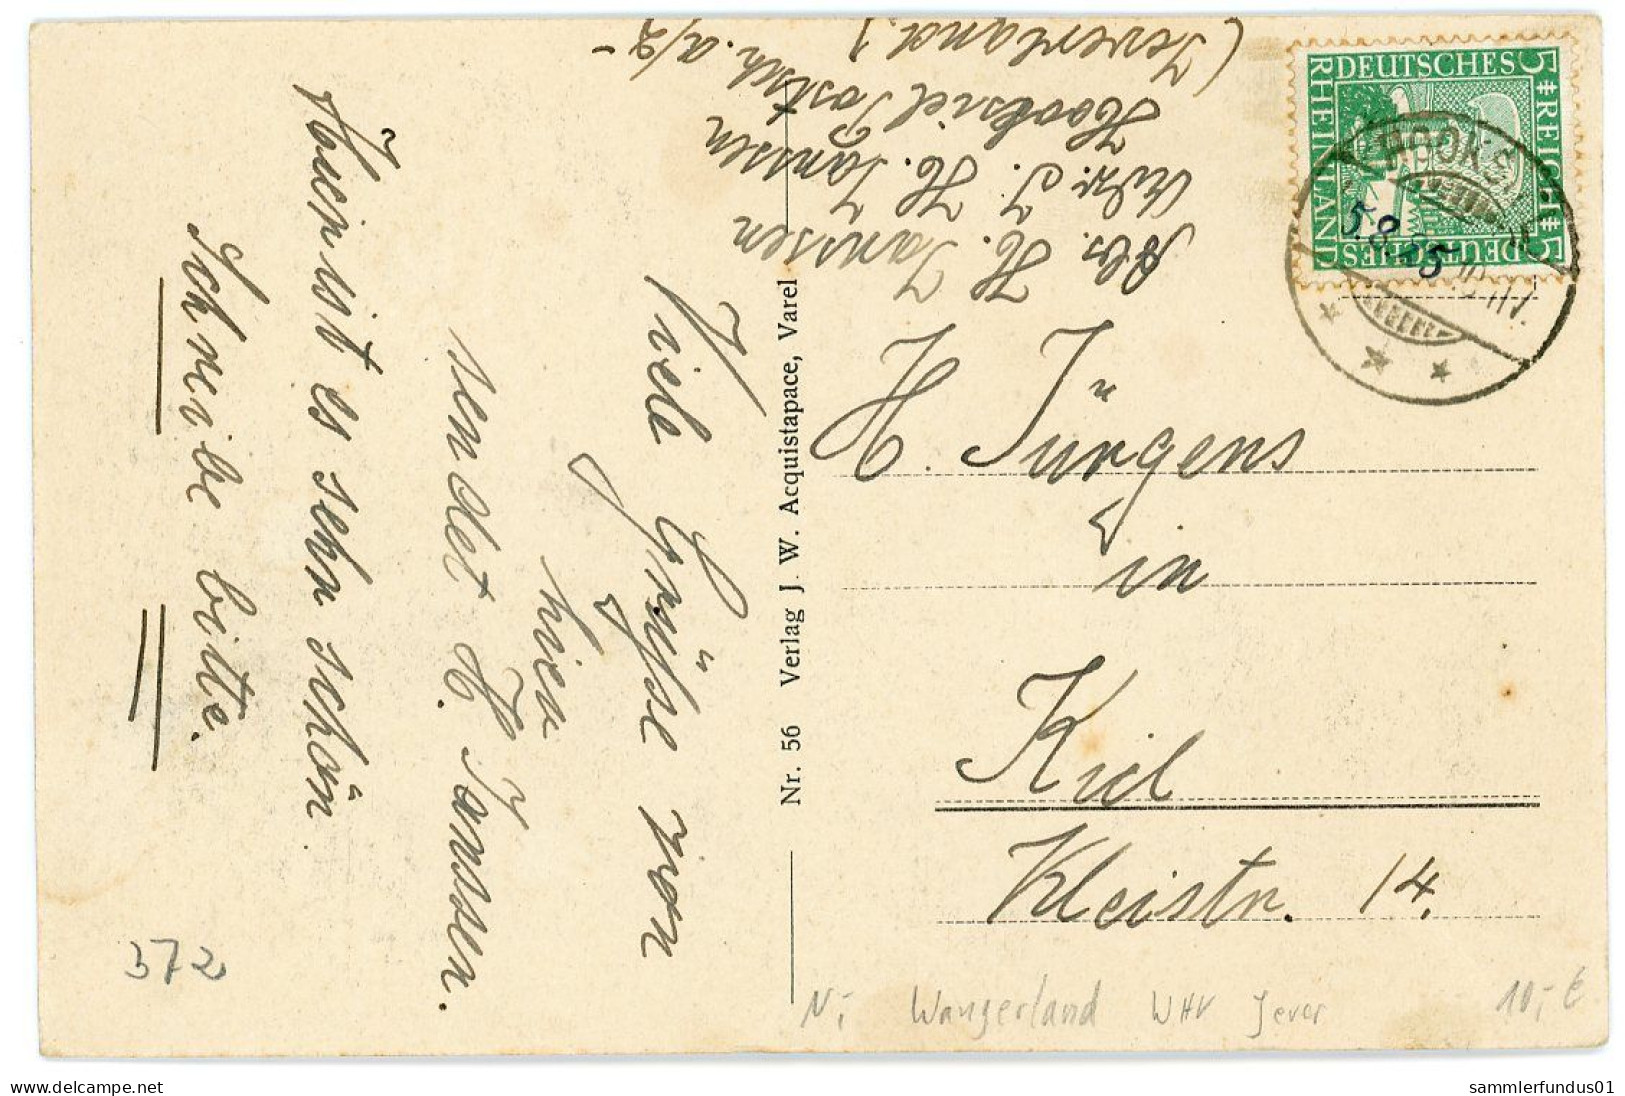 Viele Grüße von
hier
sendet H. Janssen.
Hier ist es sehr schön
Schreibe bitte.
372
Nr. 56 Verlag J. W. Acquistapace, Varel
Abs. H. Janssen
Adr. J. H. Janssen
Hooksiel Postsch. a/2-
(Jeverland.)
DEUTSCHES
5 REICH 5
RHEINLAND
DEUTSCHES
HOOKSI
5.8.25
H. Jürgens
in
Kiel
Kleistr. 14.
N,- Wangerland WHV Jever 10,- €
delcampe.net
sammlerfundus01